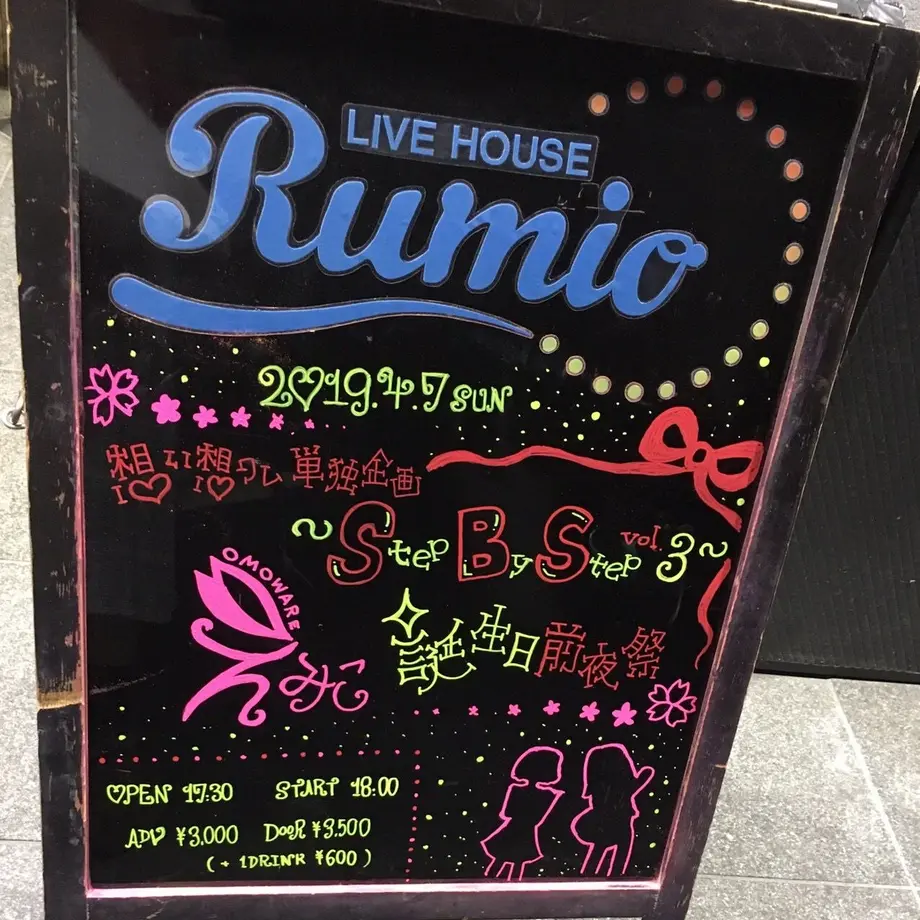 LIVE HOUSE
Rumio
2019.4.7 SUN
想い想われ 単独企画
~Step By Step vol.3~
誕生日前夜祭
OMOWARE
みこ
OPEN 17:30 START 18:00
ADV ¥3,000 DOOR ¥3,500
(+ 1DRINK ¥600)